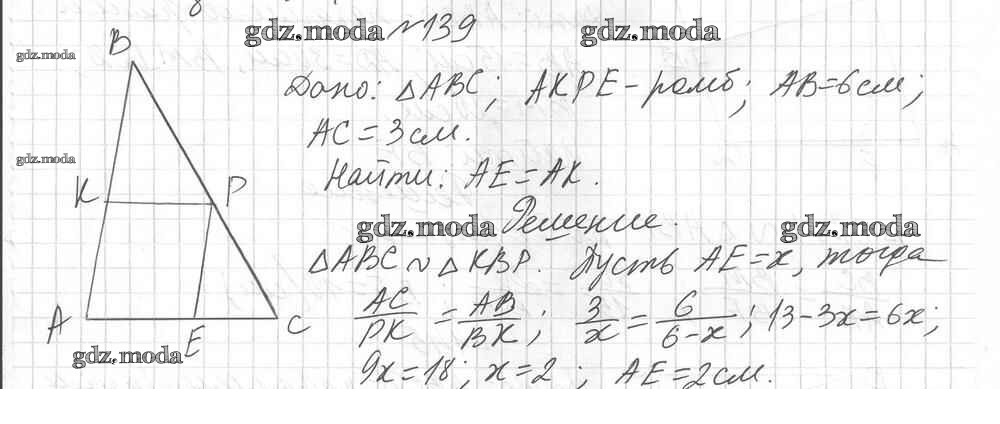 gdz.moda №139 gdz.moda
B
gdz.moda
Дано: △ABC; AKPE - ромб; AB=6см;
AC=3см.
gdz.moda
Найти: AE=AK.
K P
gdz.moda Решение. gdz.moda
△ABC ~ △KBP. Пусть AE=x, тогда
AC/PK = AB/BK; 3/x = 6/(6-x); 13-3x=6x;
A E C
gdz.moda
9x=18; x=2; AE=2см.